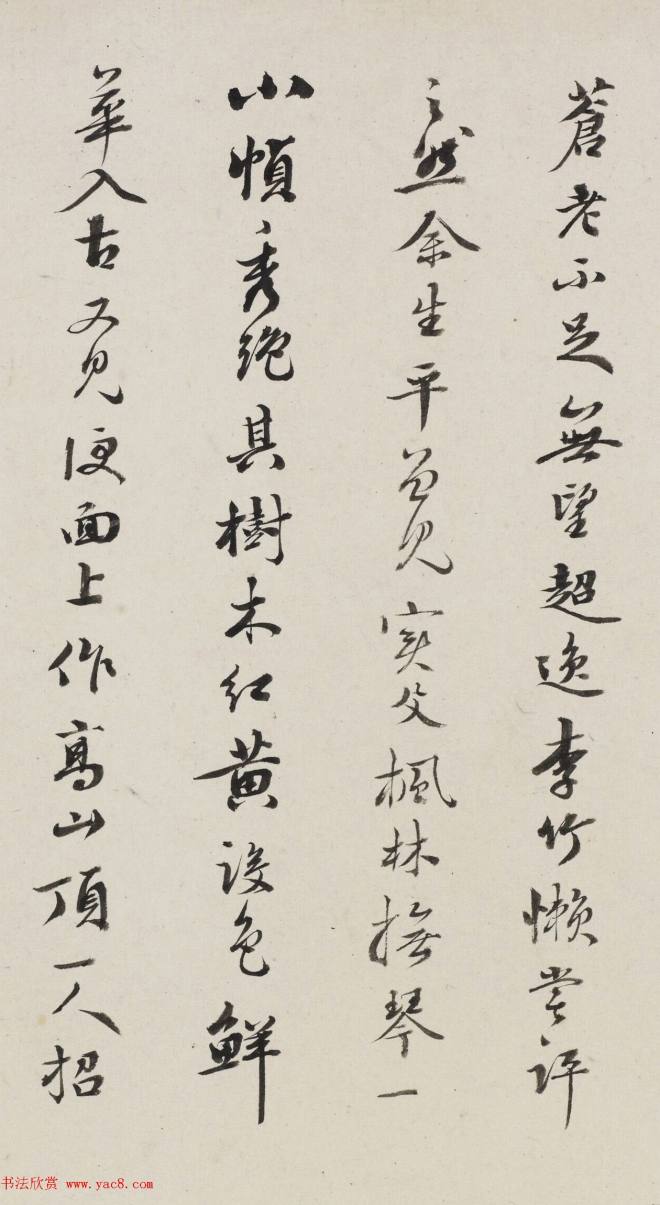 蒼老不足無望超逸李竹懶嘗評
之然余生平曾見實父楓林撫琴一
小幀秀絕其樹木紅黃設色鮮
華入古又見便面上作高山頂一人招
书法欣赏 www.yac8.com